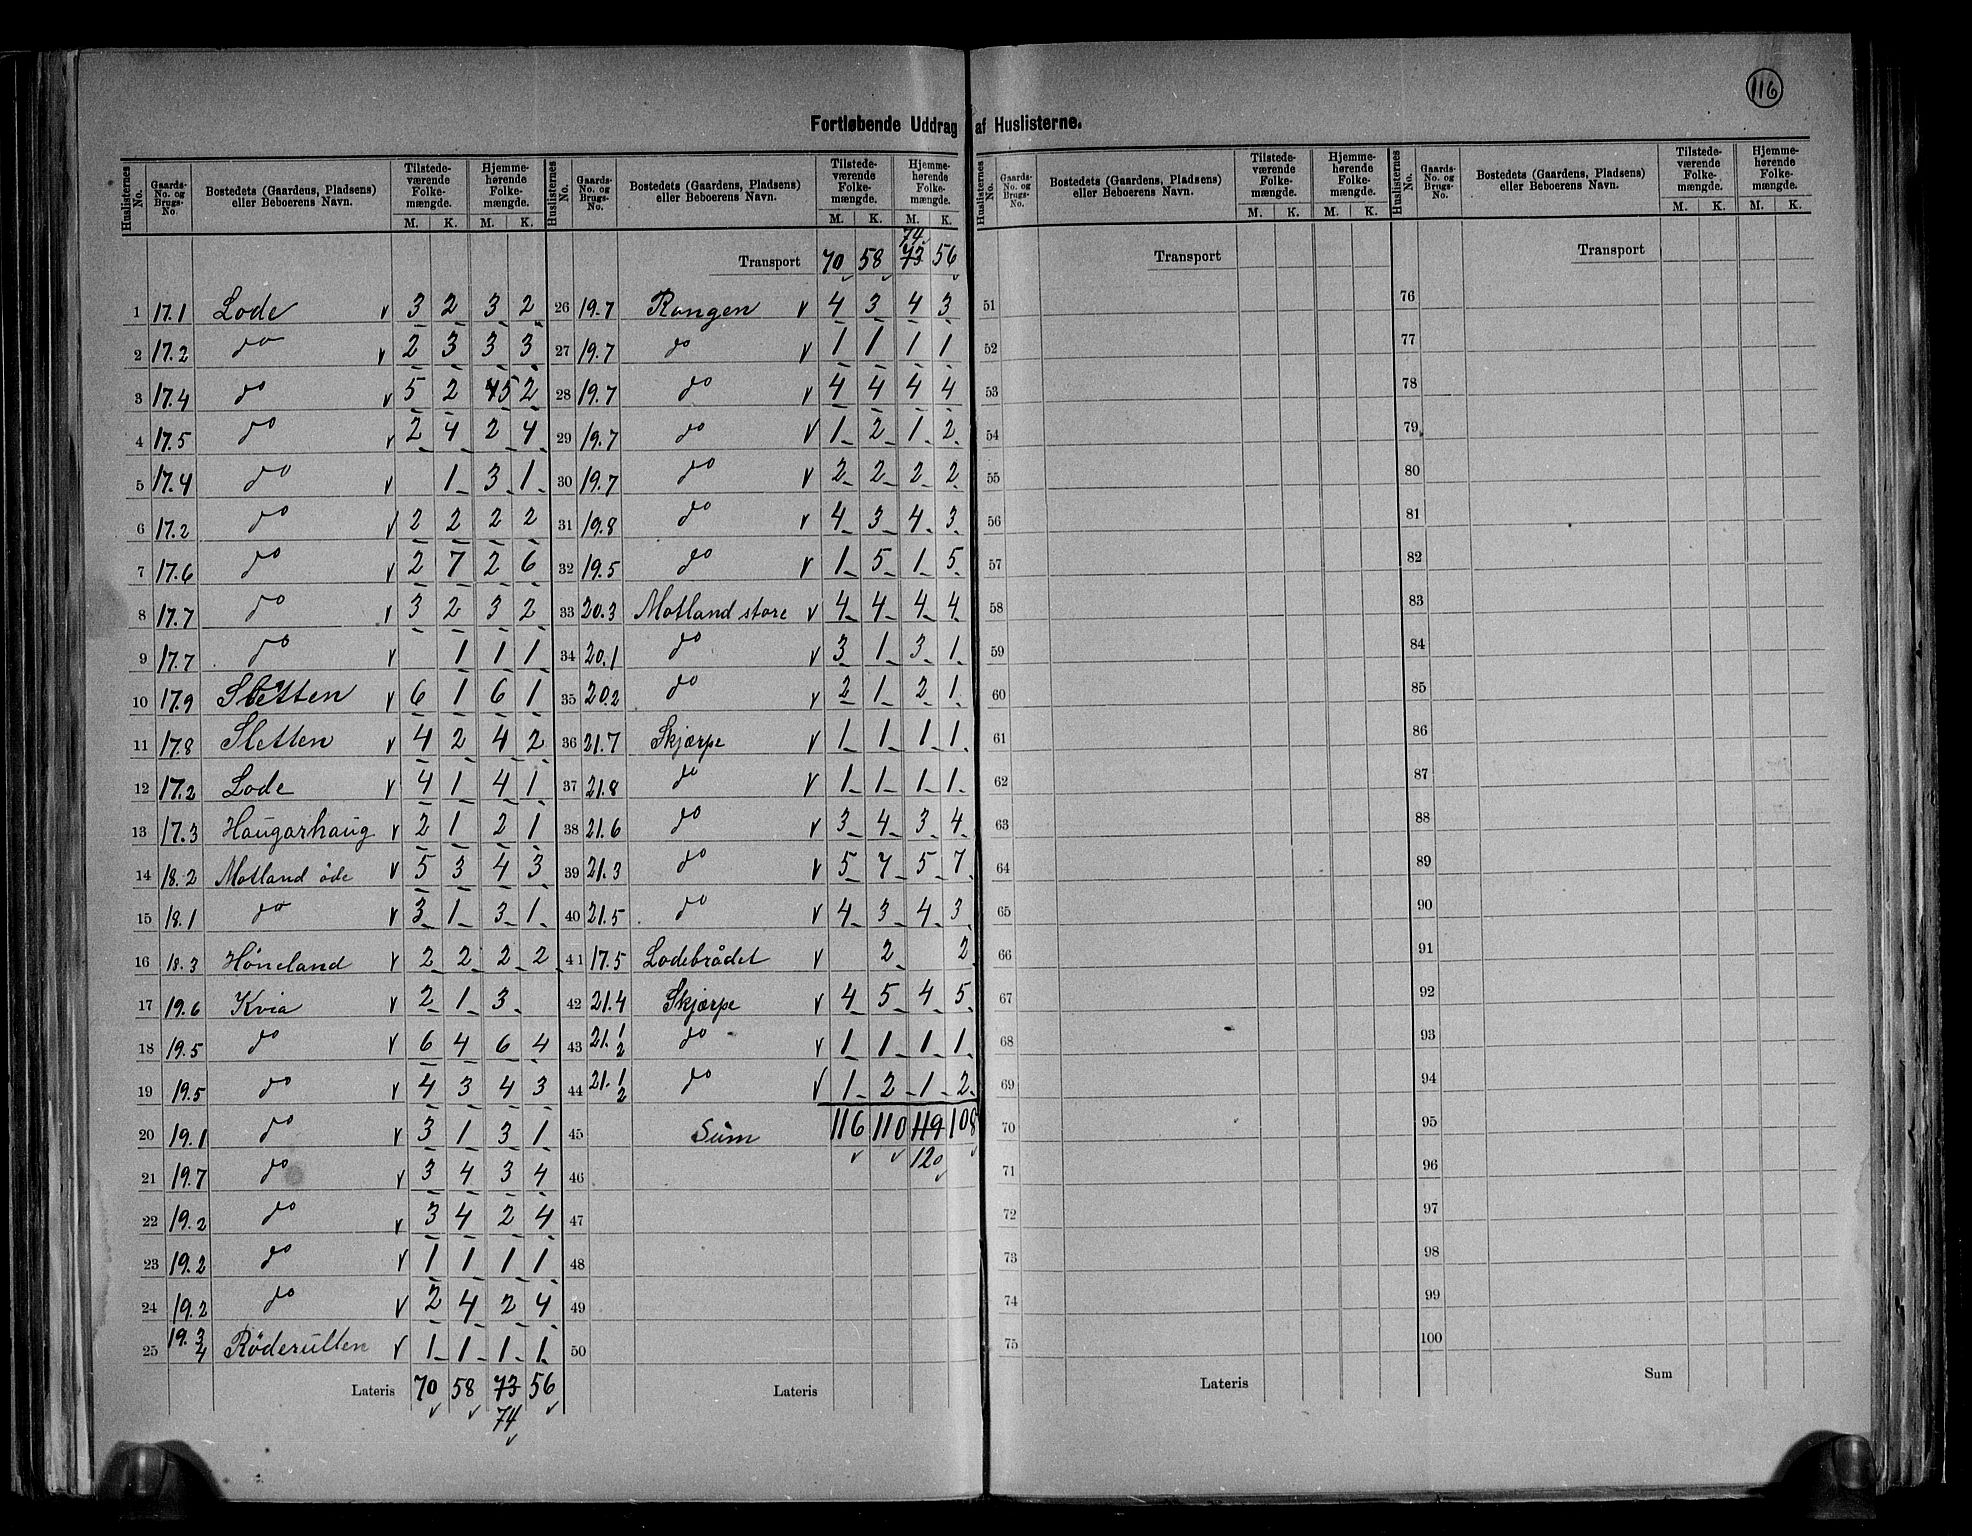 116
Fortløbende Uddrag af Huslisterne.
Huslisternes No. Gaards-No. og Brugs-No. Bostedets (Gaardens, Pladsens) eller Beboerens Navn. Tilstedeværende Folkemængde. M. K. Hjemmehørende Folkemængde. M. K.
1 17.1 Lode v 3 2 3 2
2 17.2 do v 2 3 3 3
3 17.4 do v 5 2 4 5 2
4 17.5 do v 2 4 2 4
5 17.4 do v 1 3 1
6 17.2 do v 2 2 2 2
7 17.6 do v 2 7 2 6
8 17.7 do v 3 2 3 2
9 17.7 do v 1 1 1
10 17.9 Sletten v 6 1 6 1
11 17.8 Sletten v 4 2 4 2
12 17.2 Lode v 4 1 4 1
13 17.3 Haugarhaug v 2 1 2 1
14 18.2 Motland öde v 5 3 4 3
15 18.1 do v 3 1 3 1
16 18.3 Höneland v 2 2 2 2
17 19.6 Kvia v 2 1 3
18 19.5 do v 6 4 6 4
19 19.5 do v 4 3 4 3
20 19.1 do v 3 1 3 1
21 19.7 do v 3 4 3 4
22 19.2 do v 3 4 2 4
23 19.2 do v 1 1 1 1
24 19.2 do v 2 4 2 4
25 19.3/4 Röderulten v 1 1 1 1
Lateris 70 58 73 56
74
Huslisternes No. Gaards-No. og Brugs-No. Bostedets (Gaardens, Pladsens) eller Beboerens Navn. Tilstedeværende Folkemængde. M. K. Hjemmehørende Folkemængde. M. K.
74
Transport 70 58 73 56
26 19.7 Rongen v 4 3 4 3
27 19.7 do v 1 1 1 1
28 19.7 do v 4 4 4 4
29 19.7 do v 1 2 1 2
30 19.7 do v 2 2 2 2
31 19.8 do v 4 3 4 3
32 19.5 do v 1 5 1 5
33 20.3 Motland store v 4 4 4 4
34 20.1 do v 3 1 3 1
35 20.2 do v 2 1 2 1
36 21.7 Skjærpe v 1 1 1 1
37 21.8 do v 1 1 1 1
38 21.6 do v 3 4 3 4
39 21.3 do v 5 7 5 7
40 21.5 do v 4 3 4 3
41 17.5 Lodebrådet v 2 2
42 21.4 Skjærpe v 4 5 4 5
43 21.1/2 do v 1 1 1 1
44 21.1/2 do v 1 2 1 2
45 Sum 116 110 119 108
120
46
47
48
49
50
Lateris
Huslisternes No. Gaards-No. og Brugs-No. Bostedets (Gaardens, Pladsens) eller Beboerens Navn. Tilstedeværende Folkemængde. M. K. Hjemmehørende Folkemængde. M. K.
Transport
51
52
53
54
55
56
57
58
59
60
61
62
63
64
65
66
67
68
69
70
71
72
73
74
75
Lateris
Huslisternes No. Gaards-No. og Brugs-No. Bostedets (Gaardens, Pladsens) eller Beboerens Navn. Tilstedeværende Folkemængde. M. K. Hjemmehørende Folkemængde. M. K.
Transport
76
77
78
79
80
81
82
83
84
85
86
87
88
89
90
91
92
93
94
95
96
97
98
99
100
Sum